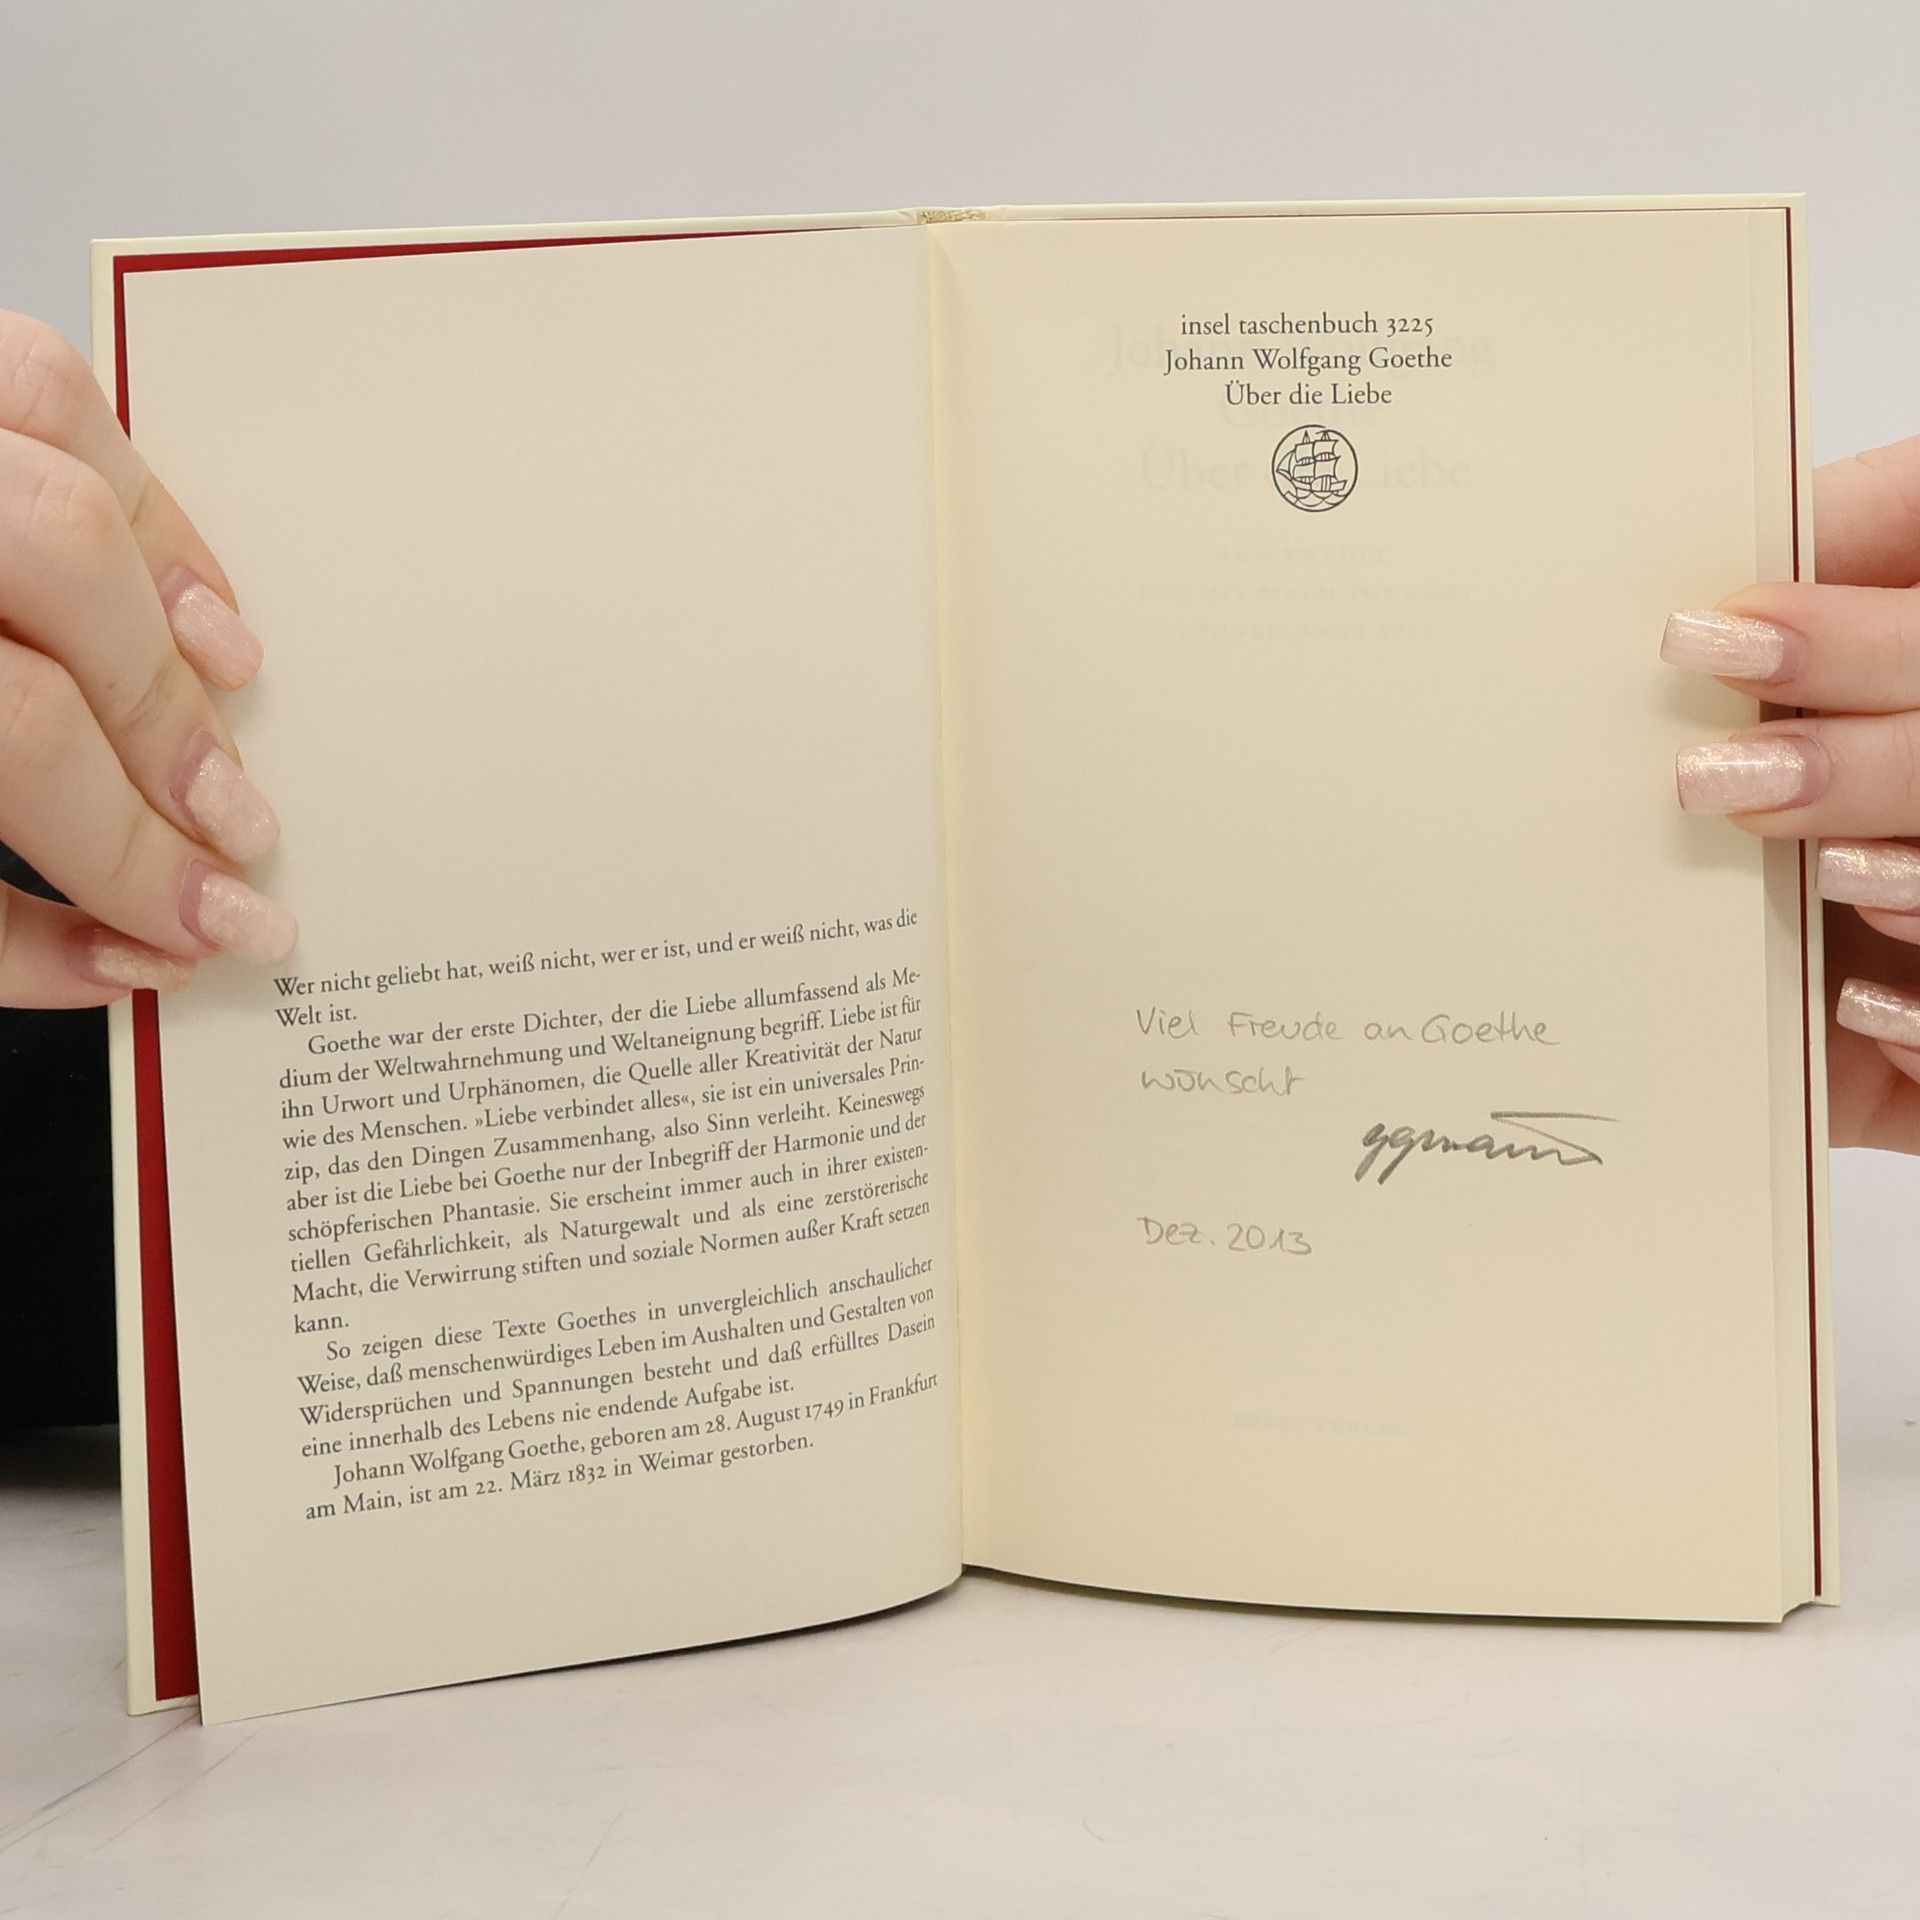 Wer nicht geliebt hat, weiß nicht, wer er ist, und er weiß nicht, was die
Welt ist.
Goethe war der erste Dichter, der die Liebe allumfassend als Me-
dium der Weltwahrnehmung und Weltaneignung begriff. Liebe ist für
ihn Urwort und Urphänomen, die Quelle aller Kreativität der Natur
wie des Menschen. »Liebe verbindet alles«, sie ist ein universales Prin-
zip, das den Dingen Zusammenhang, also Sinn verleiht. Keineswegs
aber ist die Liebe bei Goethe nur der Inbegriff der Harmonie und der
schöpferischen Phantasie. Sie erscheint immer auch in ihrer existen-
tiellen Gefährlichkeit, als Naturgewalt und als eine zerstörerische
Macht, die Verwirrung stiften und soziale Normen außer Kraft setzen
kann.
So zeigen diese Texte Goethes in unvergleichlich anschaulicher
Weise, daß menschenwürdiges Leben im Aushalten und Gestalten von
Widersprüchen und Spannungen besteht und daß erfülltes Dasein
eine innerhalb des Lebens nie endende Aufgabe ist.
Johann Wolfgang Goethe, geboren am 28. August 1749 in Frankfurt
am Main, ist am 22. März 1832 in Weimar gestorben.
insel taschenbuch 3225
Johann Wolfgang Goethe
Über die Liebe
Viel Freude an Goethe
wünscht
Dez. 2013